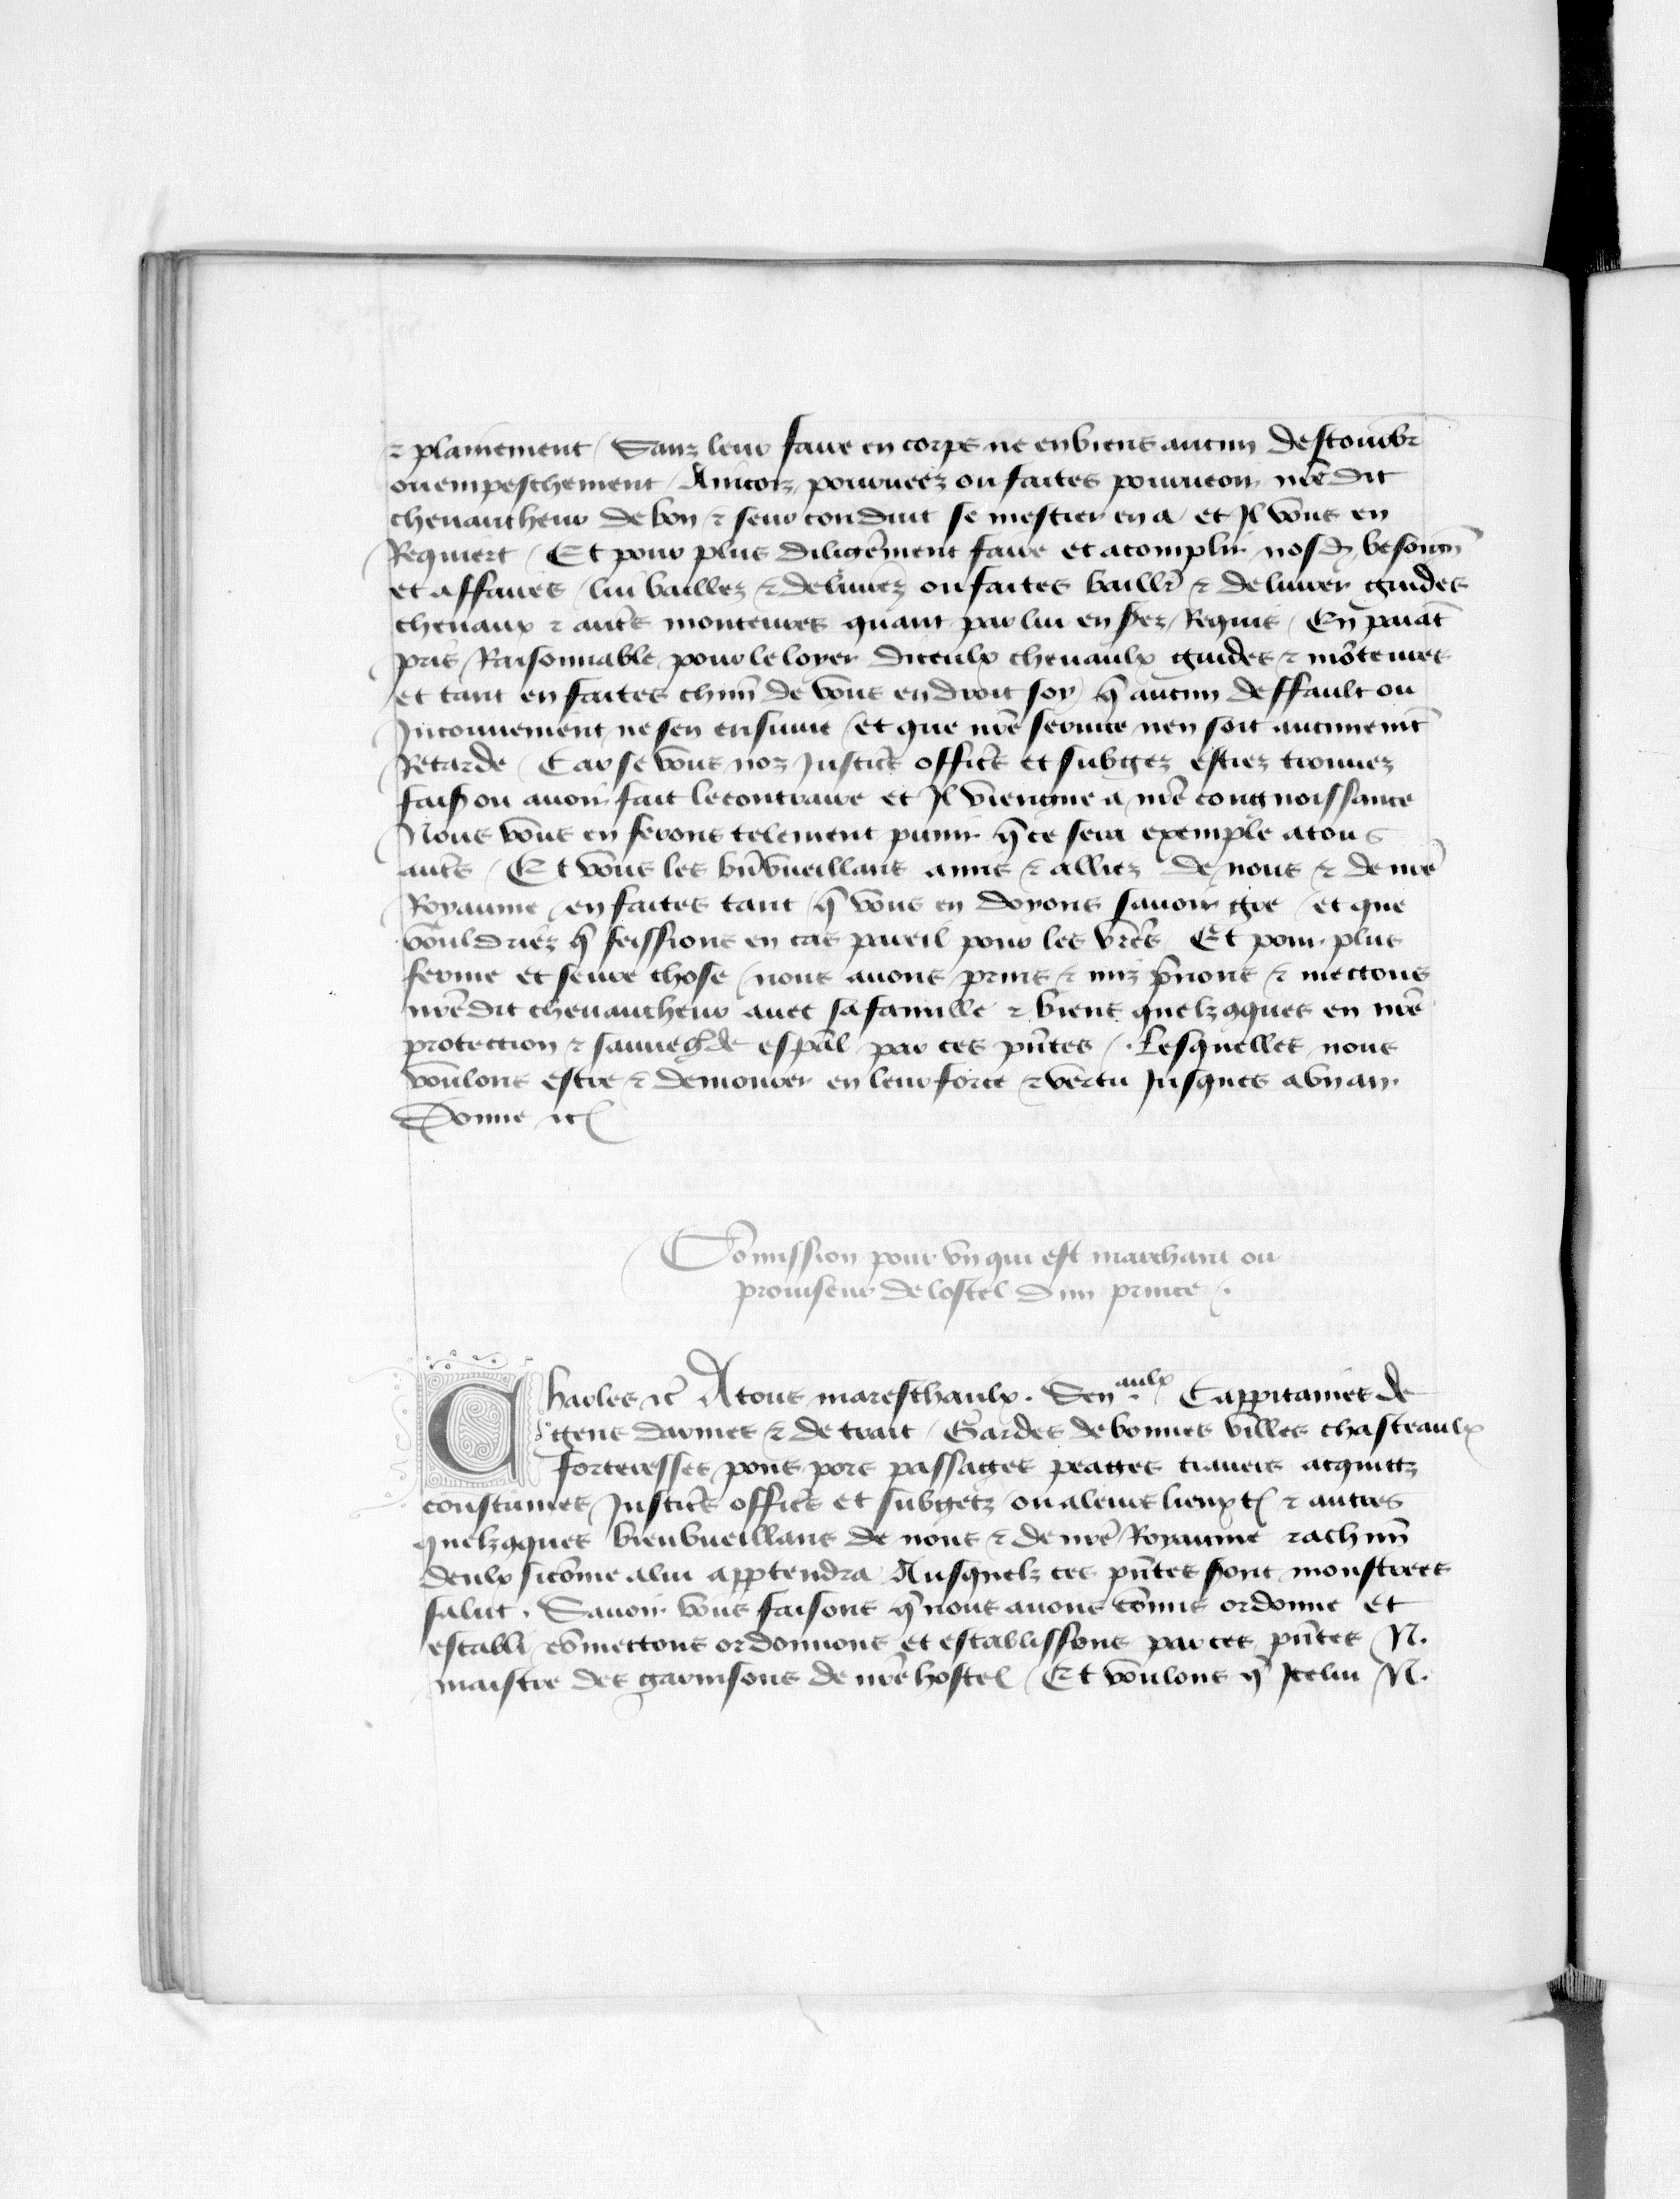 ⁊ plainement / Sanz leur faire en corps ne en biens aucun destourbr
ou empeschement / Aincoiz pourueez ou faites pourueoir nr̄e dit
cheuaucheur de bon ⁊ seur conduit se mestier en a et Il vous en
Requiert / Et pour plus diligēment faire et acomplir nosd besoin̄
et affaires / lui baillez ⁊ deliurez ou faites baillr̄ ⁊ deliurer guides
cheuaux ⁊ autr̄s monteures quant par lui en serez Requis / En paiāt
pris Raisonnable pour le loyer diceulx cheuaulx guides ⁊ mōteures
et tant en faites chūn de vous endroit soy q̄ aucun deffault ou
Inconuenient ne sen ensuiue / et que nr̄e seruice nen soit aucunemt̄
Retarde / Car se vous noz Justicr̄s officr̄s et subgez estiez trouuez
fais ou auoir fait le contraire et Il viengne a nr̄e congnoissance
Nous vous en ferons telement punir q̄ ce sera exemple a tous
autr̄s / Et vous les bn̄vueillans amis ⁊ alliez de nous ⁊ de nr̄e
Royaume en faites tant q̄ vous en doyons sauoir gre / et que
vouldriez q̄ feissions en cas pareil pour les vr̄es Et pour plus
ferme et seure chose / nous auons prins ⁊ miz pr̄nons ⁊ mectons
nr̄e dit cheuaucheur auec sa famille ⁊ biens quelzqques en nr̄e
protection ⁊ sauuegde esp̄al par ces pn̄tes / . Lesquelles nous
voulons estre ⁊ demourer en leur force ⁊ vertu Jusques a vn an.
Donne ⁊c
Cōmission pour vn qui est marchant ou
prouiseur de lostel dun prince /.
Charles ⁊c̄ A tous mareschaulx. Senaulx. Cappitaines de
gens darmes ⁊ de trait / Gardes de bonnes villes chasteaulx
forteresses pons pors passages peages trauers acquittz
coustumes Justicr̄s officr̄s et subgetz ou a leurs lieuxt ⁊ autres
quelzqques bienvueillans de nous ⁊ de nr̄e Royaume ⁊ a chūn
deulx sicōme a lui apptendra Ausquelz ces pn̄tes sont monstrees
salut. Sauoir vous faisons q̄ nous auons cōmis ordonne et
establi cōmettons ordonnons et establissons par ces pn̄tes N.
maistre des garnisons de nr̄e hostel / Et voulons q̄ Icelui N.